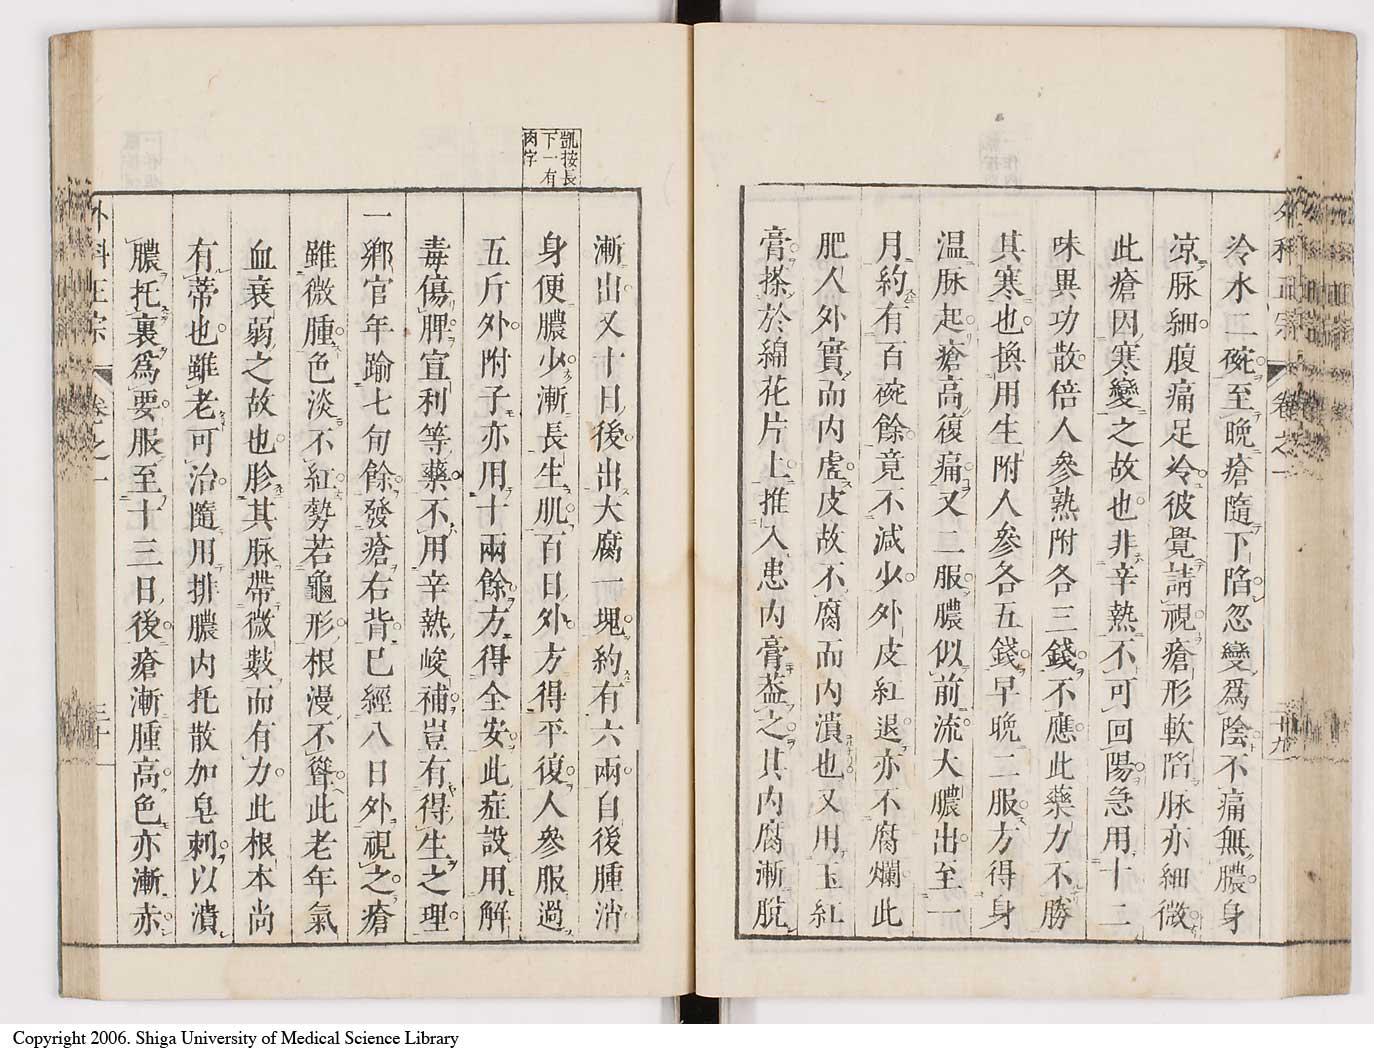 外科正宗 卷之一 二十九
冷水二碗至晚瘡隨下陷忽變爲陰不痛無膿身
凉脉細腹痛足冷彼覺請視瘡形軟陷脉亦細微
此瘡因寒變之故也非辛熱不可回陽急用十二
味異功散倍人參熟附各三錢不應此藥力不勝
其寒也換用生附人參各五錢早晚二服方得身
温脉起瘡高復痛又二服膿似前流大膿出至一
月約有百碗餘竟不減少外皮紅退亦不腐爛此
肥人外實而内虛皮故不腐而内潰也又用玉紅
膏搽於綿花片上推入患内膏葢之其内腐漸脫
漸出又十日後出大腐一塊約有六兩自後腫消
身便膿少漸長生肌百日外方得平復人參服過
五斤外附子亦用十兩餘方得全安此症設用解
毒傷脾宣利等藥不用辛熱峻補豈有得生之理
一鄕官年踰七旬餘發瘡右背已經八日外視之瘡
雖微腫色淡不紅勢若龜形根漫不聳此老年氣
血衰弱之故也胗其脉帶微數而有力此根本尚
有蒂也雖老可治隨用排膿内托散加皂刺以潰
膿托裏爲要服至十三日後瘡漸腫高色亦漸赤
凱按長
下一有
肉字
外科正宗 卷之一 三十
Copyright 2006. Shiga University of Medical Science Library